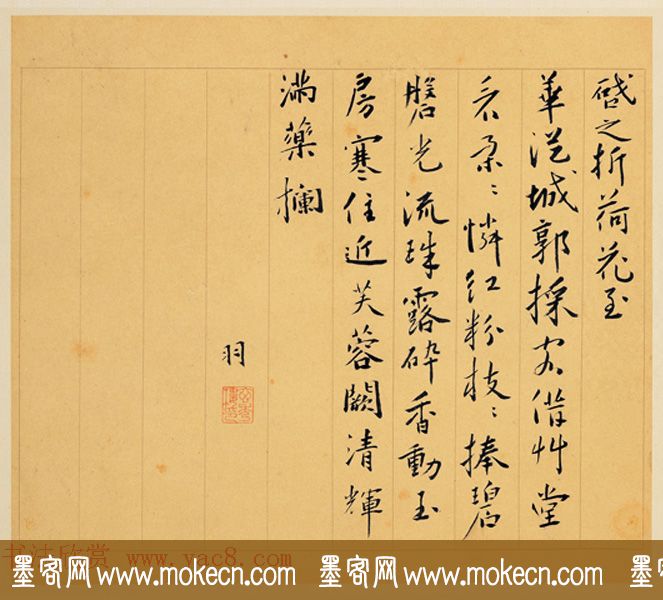 啟之折荷花至
華從城郭採客借艸堂
看朵〻憐紅粉枝〻捧碧
磐光流珠露碎香動玉
房寒住近芙蓉闕清輝
滿藥欄
羽
书法欣赏 www.yac8.com
墨客网 www.mokecn.com 墨客网 www.mokecn.com